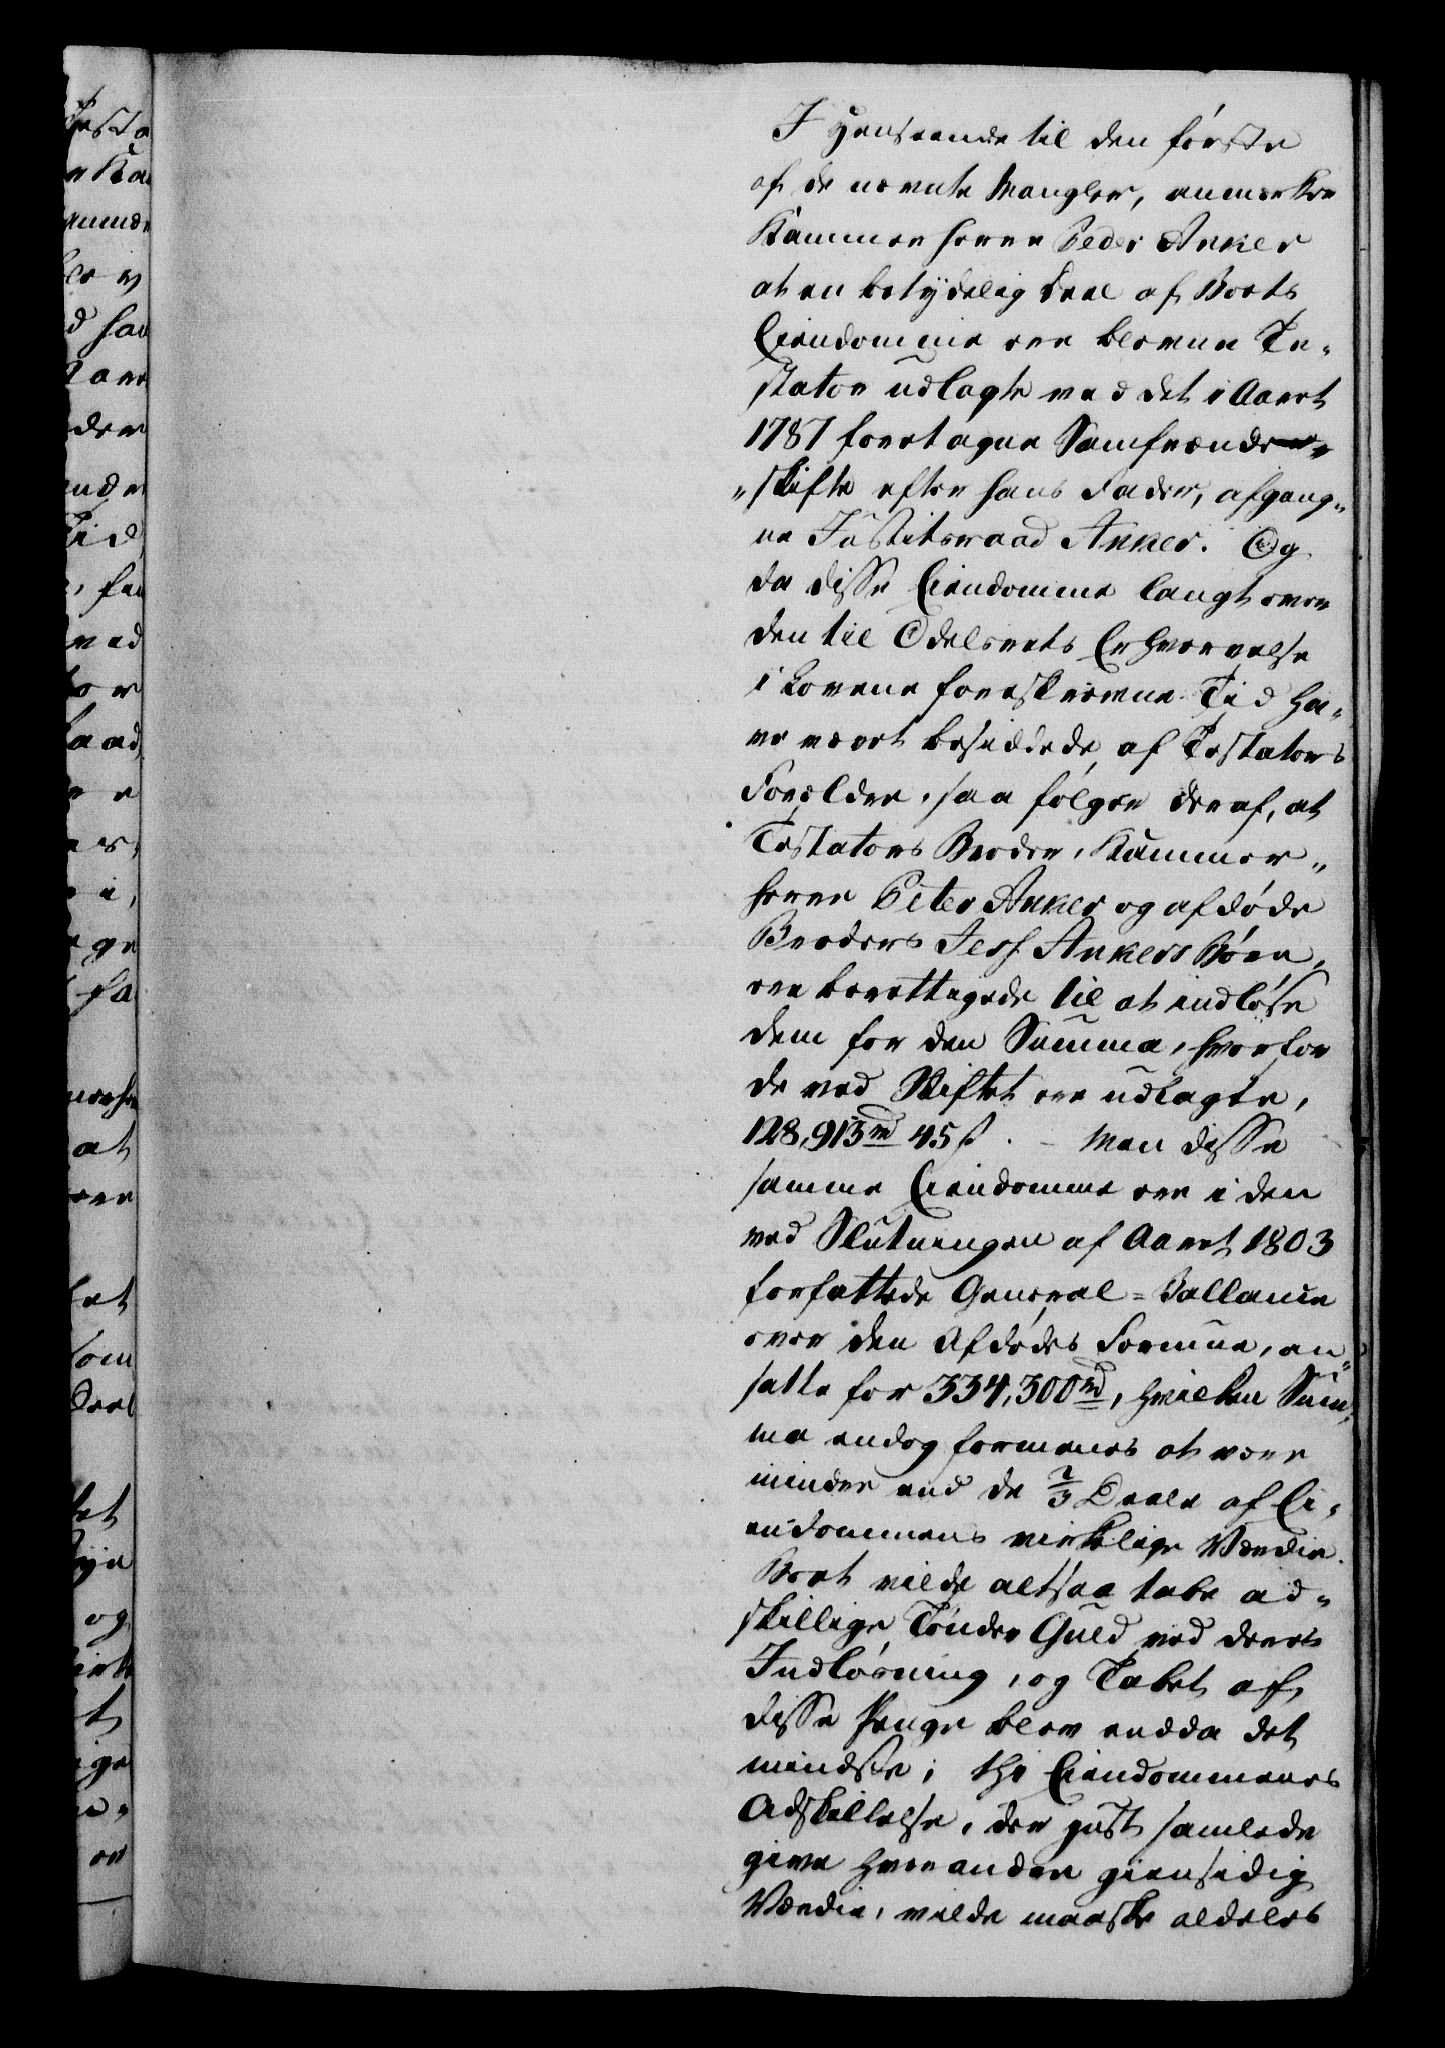 I Henseende til den første
af de nævnte Mangler, anmærker
Kammerherre Peder Anker
at en betydelig Deel af Boets
Eiendomme ere blevne Te-
stator udlagte ved det i Aaret
1787 foretagne Samfrænde-
„skifte efter hans Fader, afgang-
ne Justitsraad Anker. Og
da disse Eiendomme langt over
den til Odelsrets Erhvervelse
i Lovene foreskrevne Tid ha-
ve været besiddede af Testators
Forældre, saa følger deraf, at
Testators Broder, Kammer-
herre Peter Anker og afdøde
Broders Jess Ankers Børn,
ere berettigede til at indløse
dem for den Summa, hvorfor
de ved Skiftet ere udlagte,
128,913 rd 45 s. - Men disse
samme Eiendomme ere i den
ved Slutningen af Aaret 1803
forfattede General-Ballance
over den Afdødes Formue, an-
satte for 334,300 rd, hvilken Sum-
ma endog formenes at være
mindre end de 2/3 Deele af Ei-
endommens virkelige Værdie.
Boet vilde altsaa tabe ad-
skillige Tønder Guld ved deres
Indløsning, og Tabet af
disse Penge blev endda det
mindste; thi Eiendommenes
Adskillelse, der just samlede
give hverandre giensidig
Værdie, vilde maaske aldeles